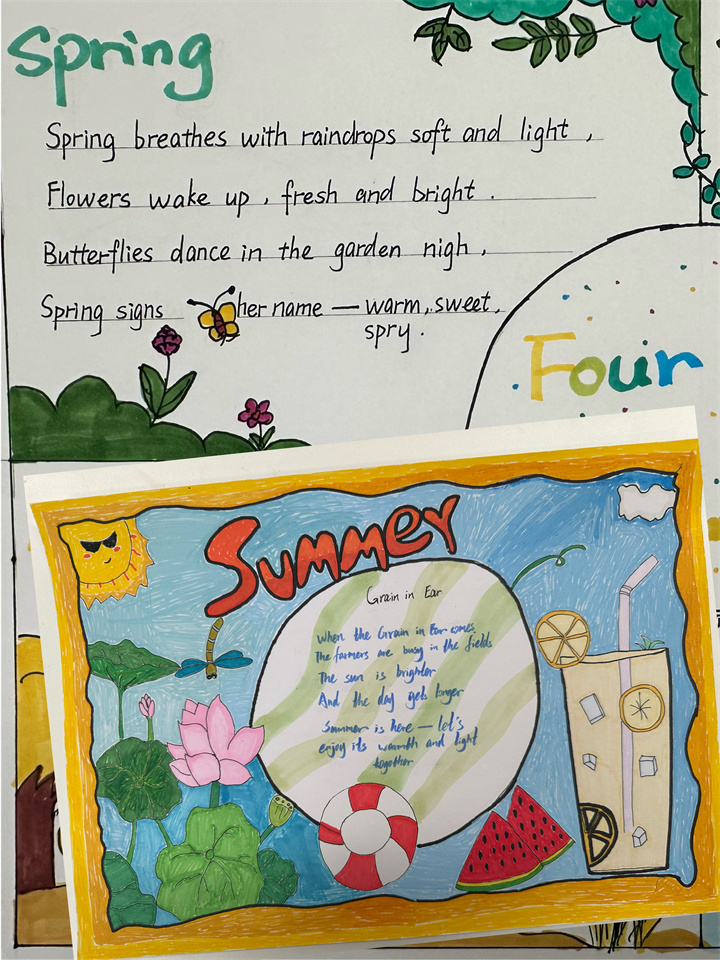 Spring
Spring breathes with raindrops soft and light ,
Flowers wake up , fresh and bright .
Butterflies dance in the garden nigh ,
Spring signs her name — warm, sweet,
spry .
Four
Summer
Grain in Ear
When the Grain in Ear comes
The farmers are busy in the fields
The sun is brighter
And the day gets longer
Summer is here — let's
enjoy its warmth and light
together